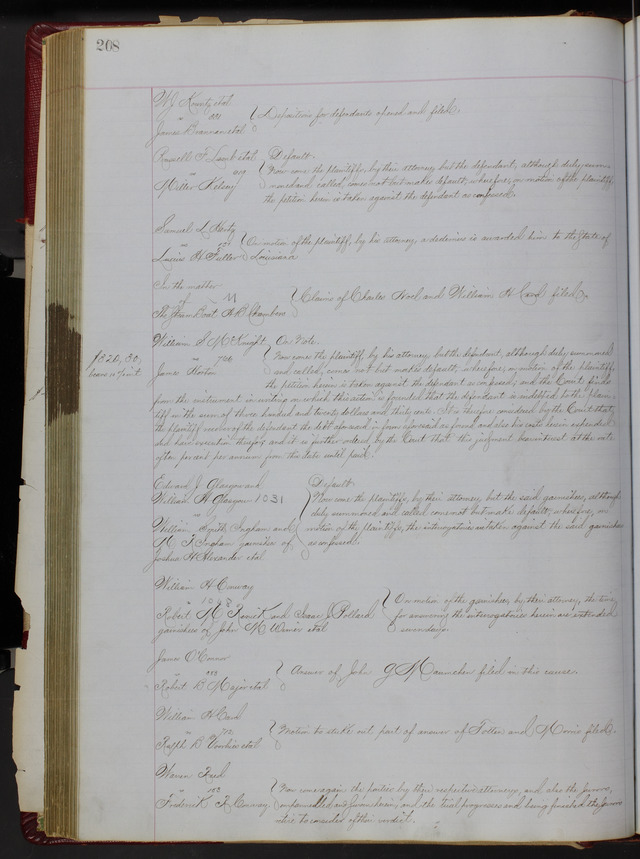 268
et al
" 
James Brannan et al } Depositions for defendants opened and filed.
Russell F. Lamb et al } Default.
" 
Now come the plaintiffs, by their attorney, but the defendant, although duly summoned
Miller Kelsey
and called, comes not but makes default; wherefore, on motion of the plaintiffs
the petition herein is taken against the defendant as confessed.
Samuel L.
" } On motion of the plaintiff, by his attorney, a dedimus is awarded him to the State of
Lucius H. Fuller } Louisiana
In the matter
of } Claims of Charles and William H. filed.
The Steam Boat Chambers
William S. McKnight } On Note.
$320.30, " 766 } Now comes the plaintiff by his attorney, but the defendant, although duly summoned
bears 10 % int. James Horton
and called, comes not but makes default; wherefore, on motion of the plaintiff
the petition herein is taken against the defendant as confessed; and the Court finds
from the instrument in writing on which this action is founded that the defendant is indebted to the plain-
tiff in the sum of three hundred and twenty dollars and thirty cents. It is therefore considered by the Court that
the plaintiff recover of the defendant the debt aforesaid in form aforesaid as found and also his costs herein expended
and have execution therefor, and it is further ordered by the Court that this judgment bear interest at the rate
of ten per cent per annum from this date until paid.
Edward J. Glasgow and } Default
William H. Glasgow 1031 } Now come the plaintiffs, by their attorney, but the said garnishees, although
" duly summoned and called come not but make default; wherefore, on
William Smith Ingham and motion of the plaintiffs, the interrogatories are taken against the said garnishees
M. K. Ingham garnishees of as confessed.
Joshua H. Alexander et al
William H. Conway
" 1098 } On motion of the garnishees, by their attorney, the time
Robert M. and Isaac J. Pollard } for answering the interrogatories herein are extended
garnishees of John M. Wimer et al
James O'Connor
" } Answer of John G. filed in this cause.
Robert B. Major et al
William H. Card
" } Motion to strike out part of answer of and Morris filed.
Ralph et al
Warren Reed
" } Now come again the parties by their respective attorneys, and also the jurors,
Frederick R. Conway } empannelled and sworn herein, and the trial progresses and being finished the jurors
retire to consider of their verdict.